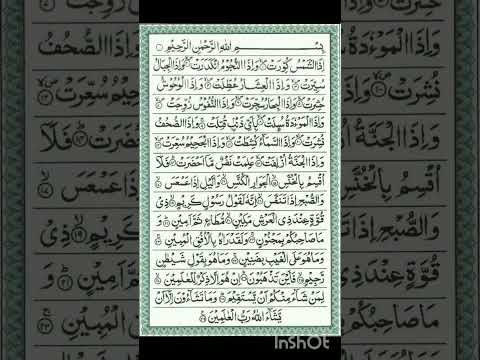 بِسْمِ اللهِ الرَّحْمٰنِ الرَّحِيْمِ ۝
اِذَا الشَّمْسُ كُوِّرَتْ ۝ وَاِذَا النُّجُوْمُ انْكَدَرَتْ ۝ وَاِذَا الْجِبَالُ
سُيِّرَتْ ۝ وَاِذَا الْعِشَارُ عُطِّلَتْ ۝ وَاِذَا الْوُحُوْشُ
حُشِرَتْ ۝ وَاِذَا الْبِحَارُ سُجِّرَتْ ۝ وَاِذَا النُّفُوْسُ زُوِّجَتْ ۝
وَاِذَا الْمَوْءٗدَةُ سُئِلَتْ ۝ بِاَيِّ ذَنْۢبٍ قُتِلَتْ ۝ وَاِذَا الصُّحُفُ
نُشِرَتْ ۝ وَاِذَا السَّمَآءُ كُشِطَتْ ۝ وَاِذَا الْجَحِيْمُ سُعِّرَتْ ۝
وَاِذَا الْجَنَّةُ اُزْلِفَتْ ۝ عَلِمَتْ نَفْسٌ مَّآ اَحْضَرَتْ ۝ فَلَآ
اُقْسِمُ بِالْخُنَّسِ ۝ الْجَوَارِ الْكُنَّسِ ۝ وَالَّيْلِ اِذَا عَسْعَسَ ۝
وَالصُّبْحِ اِذَا تَنَفَّسَ ۝ اِنَّهٗ لَقَوْلُ رَسُوْلٍ كَرِيْمٍ ۝ ذِيْ
قُوَّةٍ عِنْدَ ذِي الْعَرْشِ مَكِيْنٍ ۝ مُّطَاعٍ ثَمَّ اَمِيْنٍ ۝ وَ
مَا صَاحِبُكُمْ بِمَجْنُوْنٍ ۝ وَلَقَدْ رَاٰهُ بِالْاُفُقِ الْمُبِيْنِ ۝
وَمَا هُوَ عَلَى الْغَيْبِ بِضَنِيْنٍ ۝ وَمَا هُوَ بِقَوْلِ شَيْطٰنٍ
رَّجِيْمٍ ۝ فَاَيْنَ تَذْهَبُوْنَ ۝ اِنْ هُوَ اِلَّا ذِكْرٌ لِّلْعٰلَمِيْنَ ۝
لِمَنْ شَآءَ مِنْكُمْ اَنْ يَّسْتَقِيْمَ ۝ وَمَا تَشَآءُوْنَ اِلَّآ اَنْ
يَّشَآءَ اللهُ رَبُّ الْعٰلَمِيْنَ ۝
InShOt